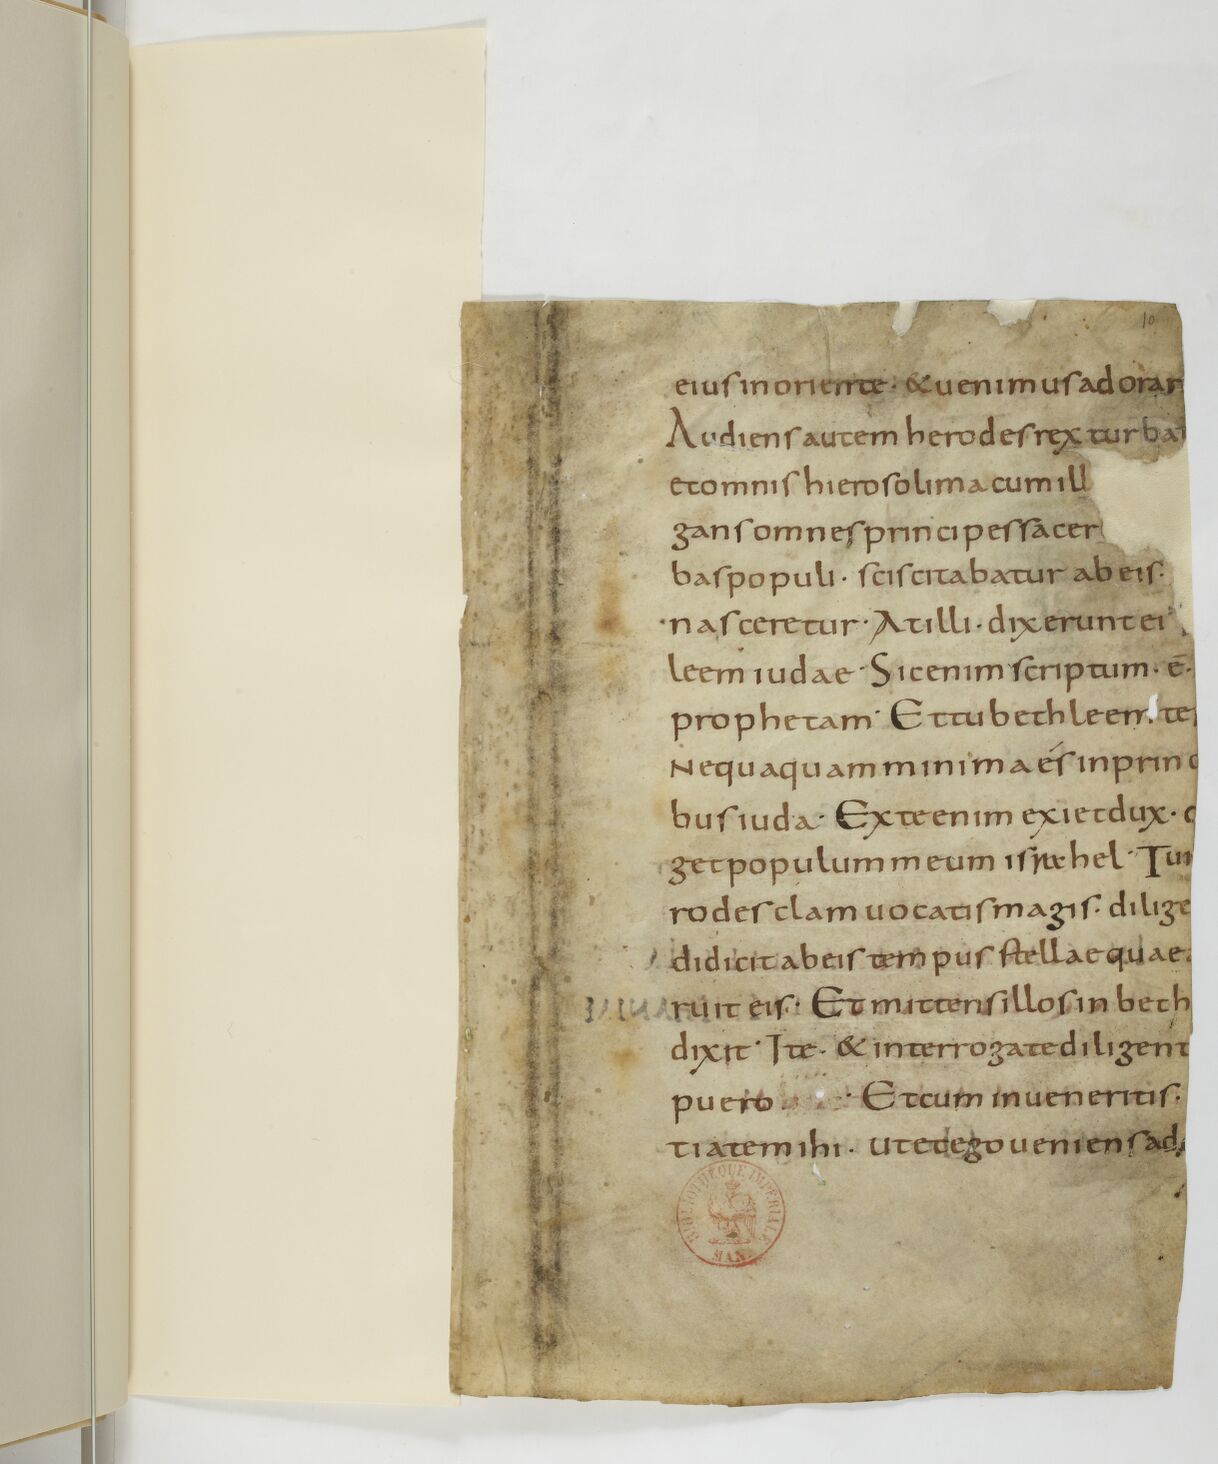 10
eius in oriente · & uenimus adorar
Audiens autem herodes rex turbat
et omnis hierosolima cum ill
gans omnes principes sacer
bas populi · sciscitabatur ab eis ·
nasceretur · At illi · dixerunt ei
leem iudae · Sic enim scriptum · ē ·
prophetam · Et tu bethleem · ter
Nequaquam minima és in princ
bus iuda · Ex te enim exiet dux ·
get populum meum israhel · Tun
rodes clam uocatis magis · dilige
didicit ab eis tempus stellae quae
ruit eis · Et mittens illos in beth
dixit · Ite · & interrogate diligent
puero · Et cum inueneritis ·
tiate mihi · ut et ego ueniens ado
BIBLIOTHÈQUE IMPÉRIALE
MAN.